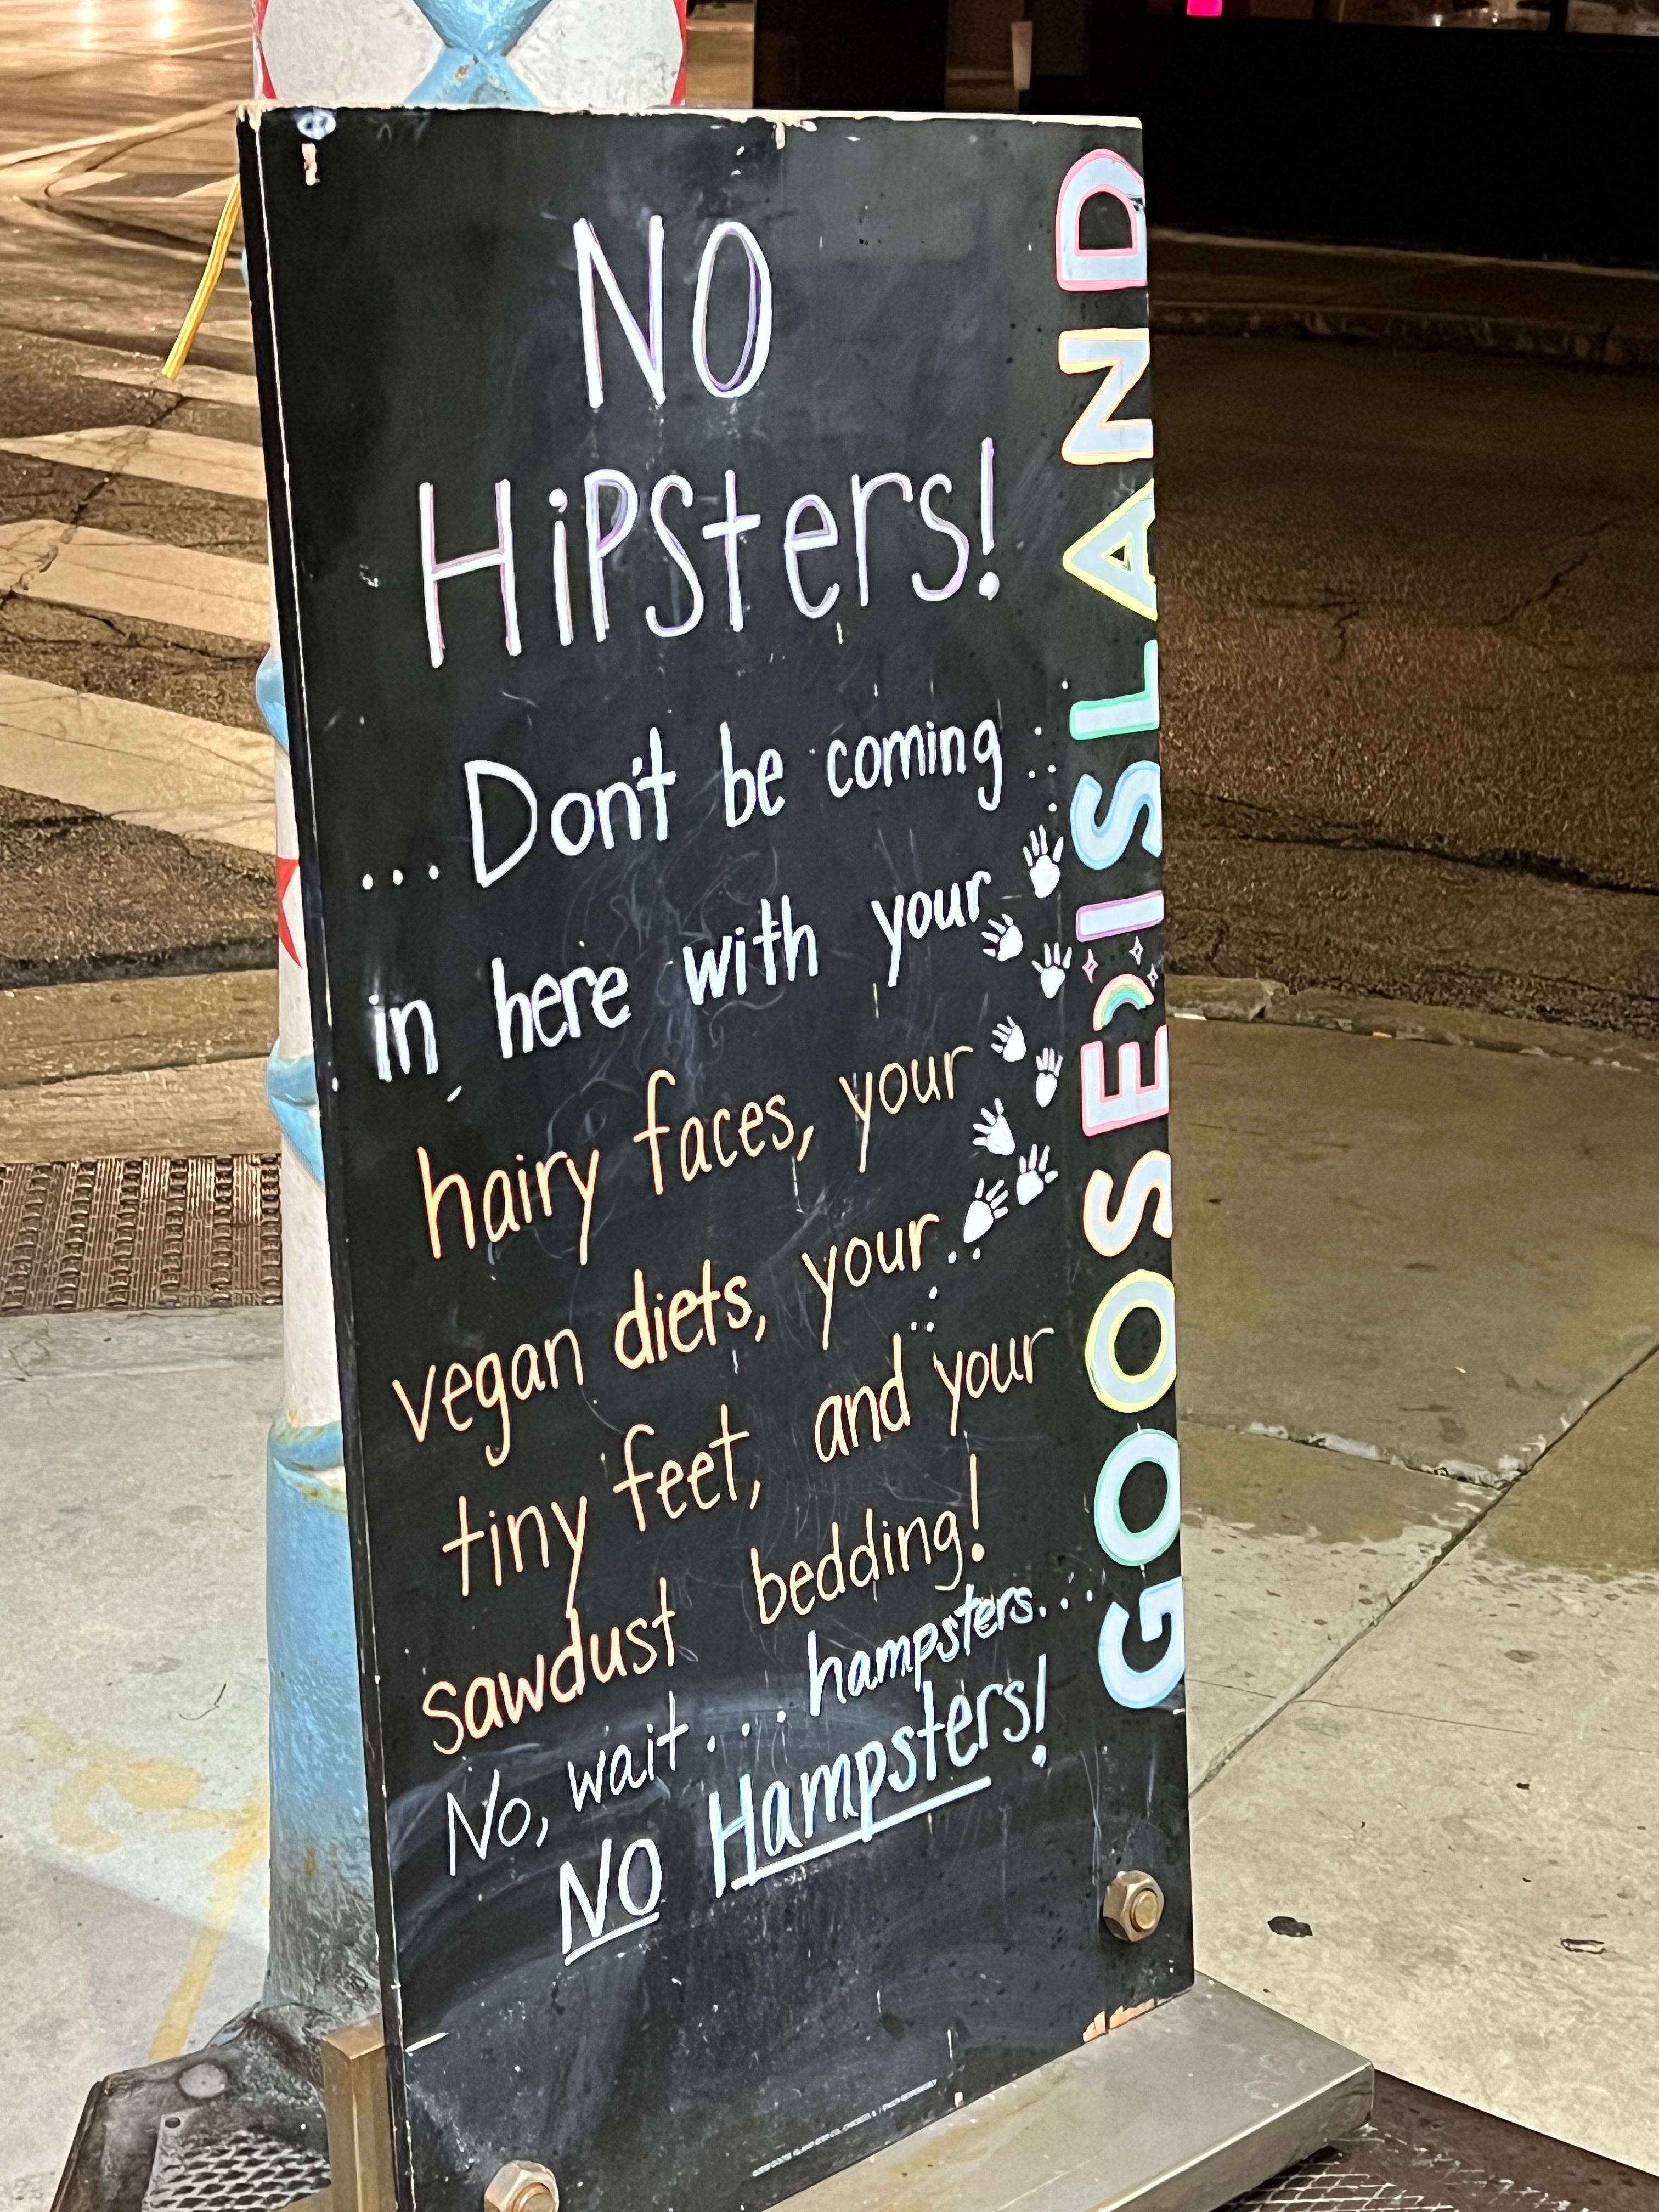 NO
HiPSters!
...Don't be coming
in here with your
hairy faces, your
vegan diets, your
tiny feet, and your
sawdust bedding!
No, wait... hampsters...
NO Hampsters!
GOOSE ISLAND